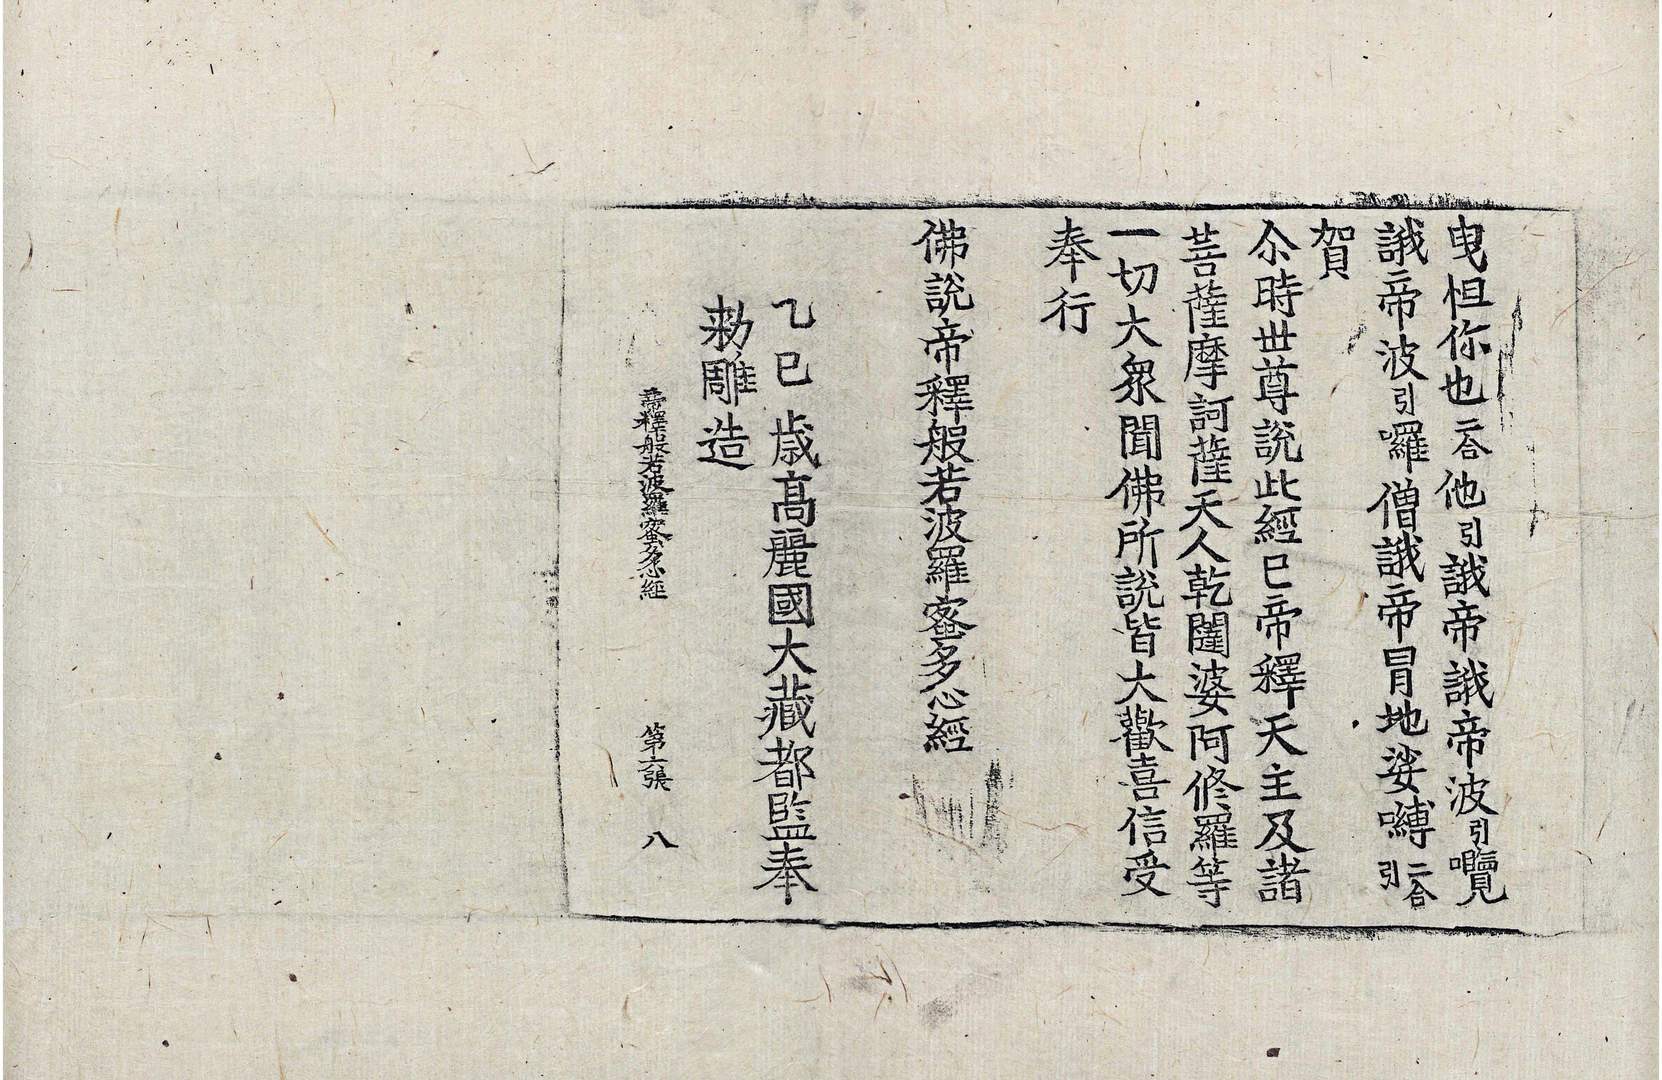 曳怛你也二合他引誐帝誐帝波引囕
誐帝波引囉僧誐帝冒地娑嚩二合引
賀
尒時世尊說此經已帝釋天主及諸
菩薩摩訶薩天人乾闥婆阿修羅等
一切大衆聞佛所說皆大歡喜信受
奉行
佛說帝釋般若波羅蜜多心經
乙巳歲高麗國大藏都監奉
勑雕造
帝釋般若波羅蜜多心經 第六張 八